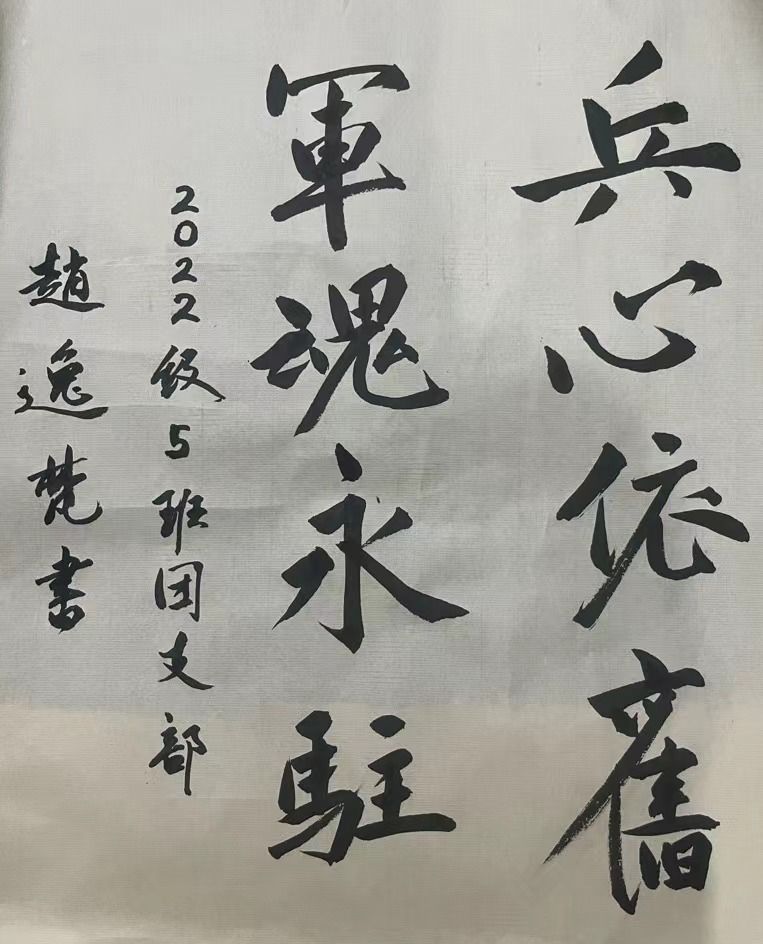 兵心依舊
軍魂永駐
2022级5班团支部
趙逸梵書